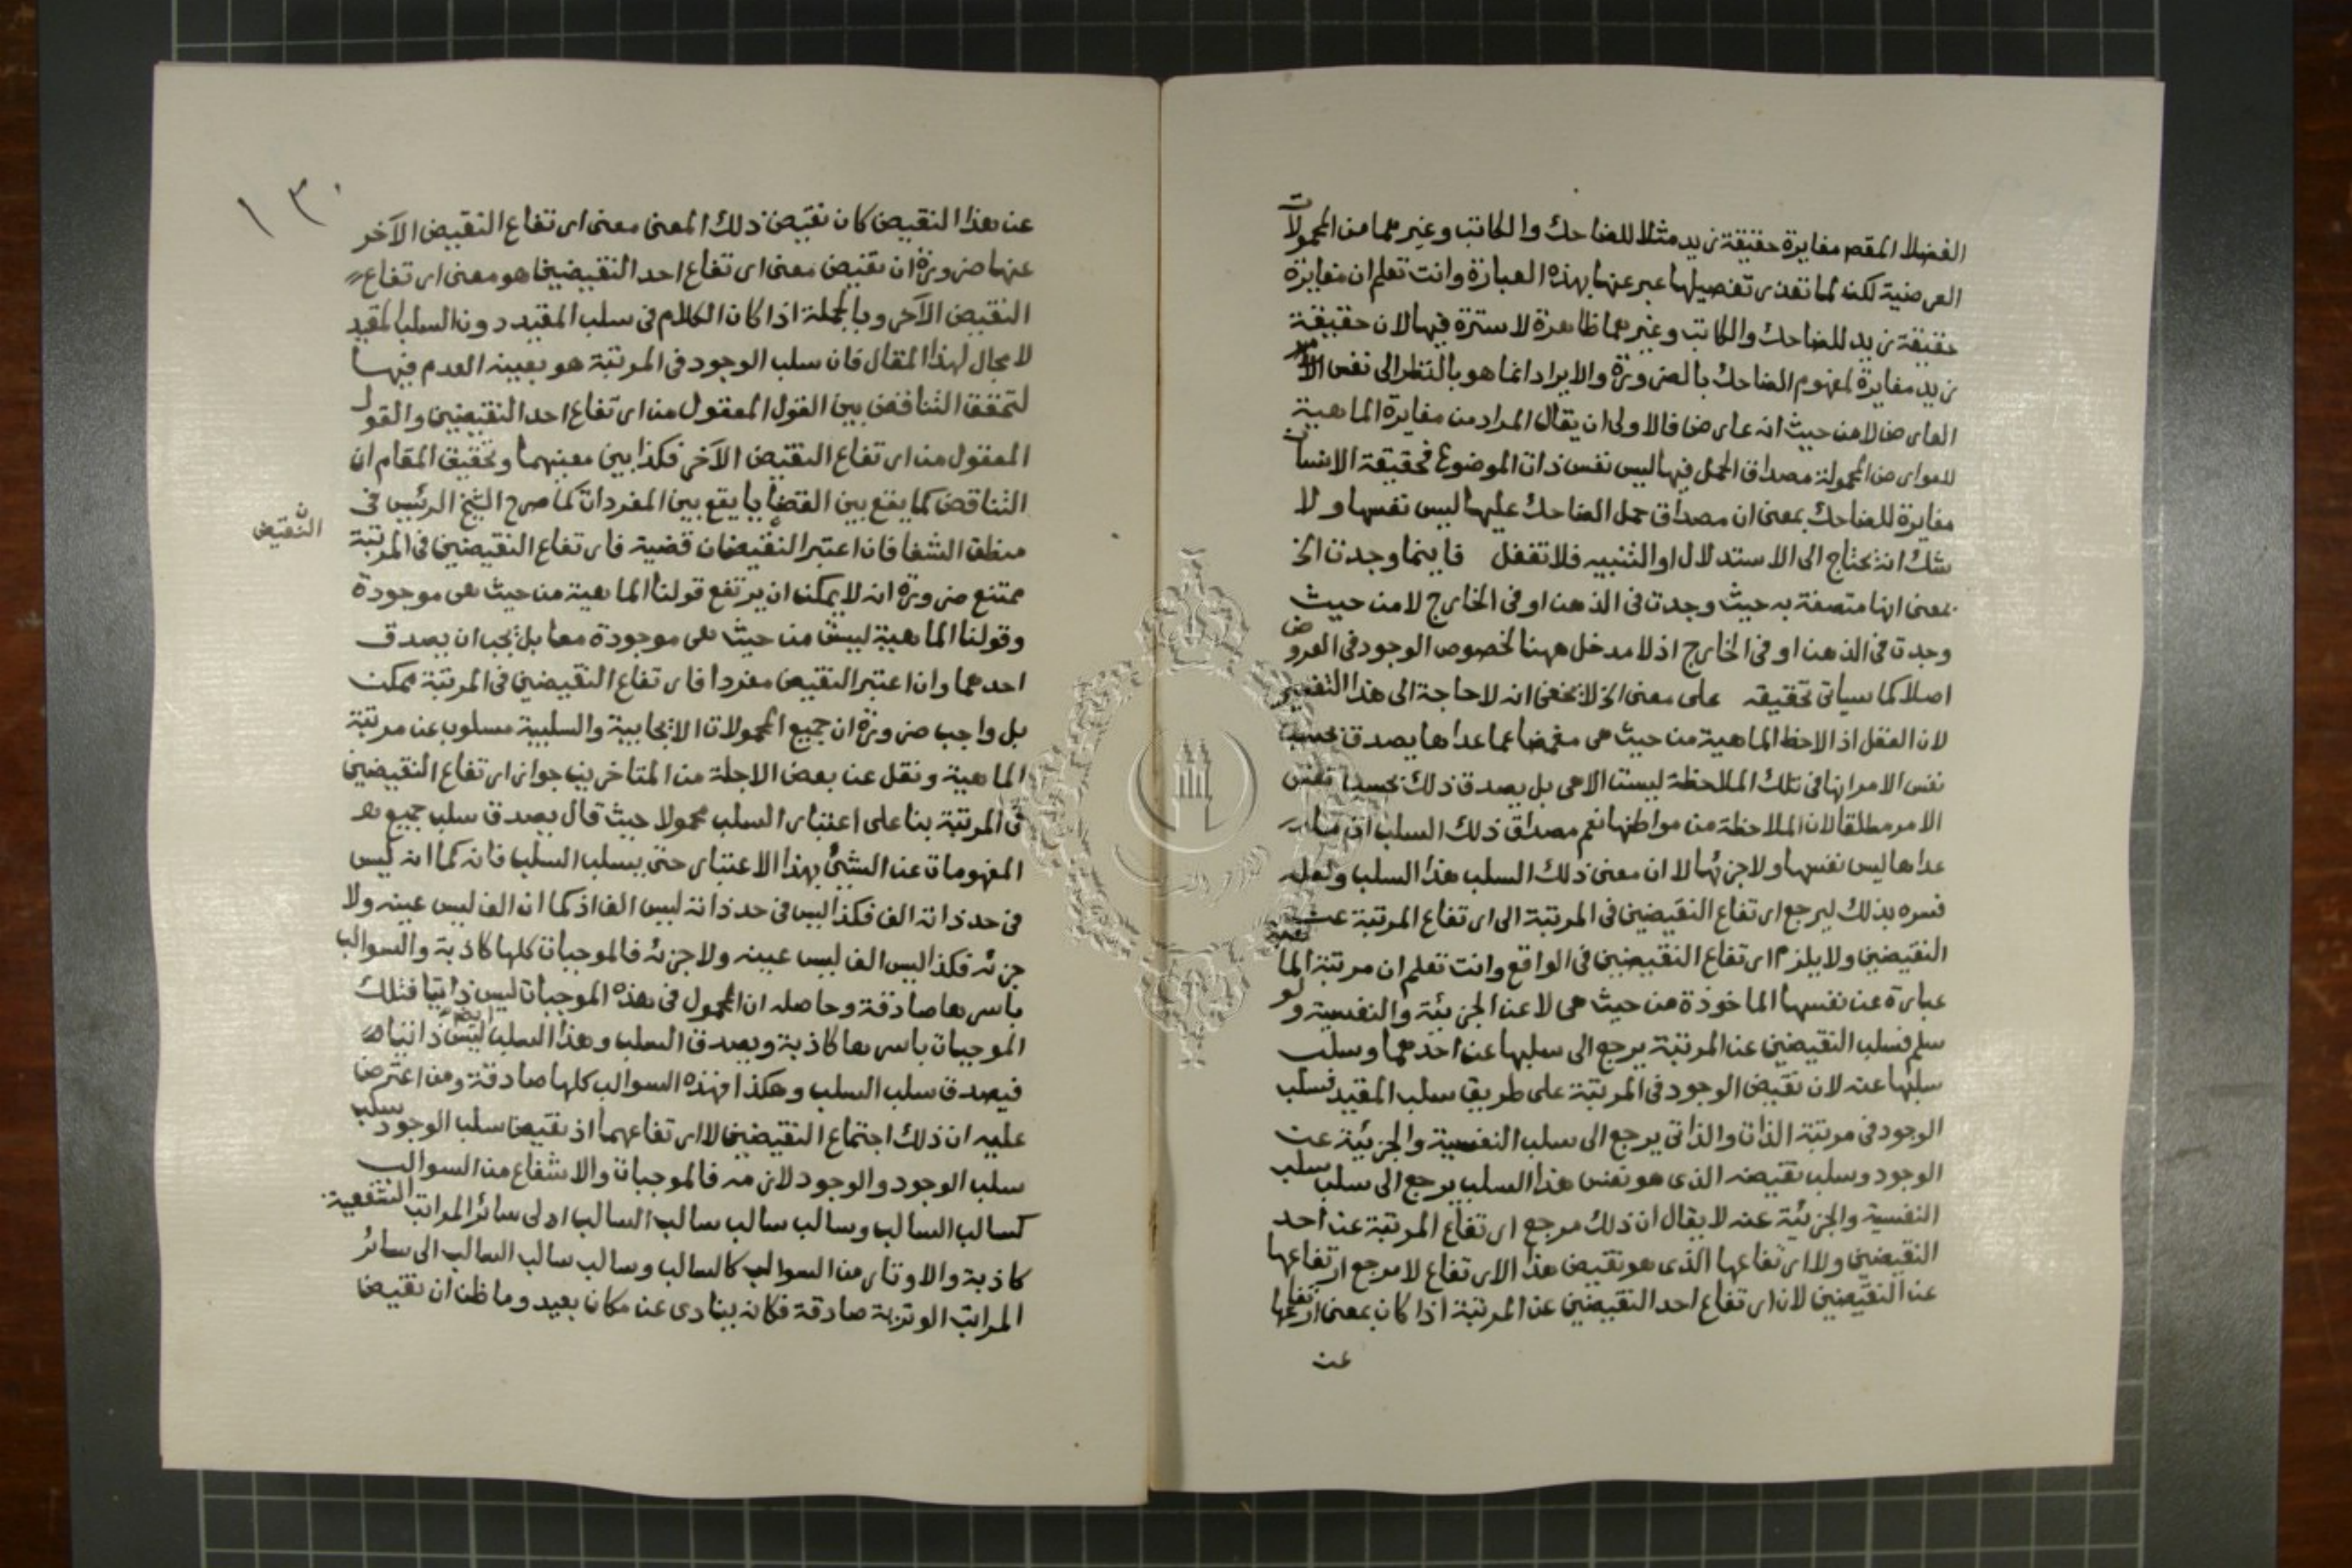 الفضلا المقصر مغايرة حقيقة زيد مثلا للضاحك والكاتب وغيرهما من المحمولات
العرضية لكنه لما تعذر تفصيلها عبر عنها بهذه العبارة وانت تعلم ان مغايرة
حقيقة زيد للضاحك والكاتب وغيرهما ظاهرة لا سترة فيها لان حقيقة
زيد مغايرة لمفهوم الضاحك بالضرورة والايراد انما هو بالنظر الى نفس الامر
العارض لا من حيث انه عارض فالاولى ان يقال المراد من مغايرة الماهية
للعوارض المحمولة مصداق الحمل فيها ليس نفس ذات الموضوع فحقيقة الانسان
مغايرة للضاحك بمعنى ان مصداق حمل الضاحك عليها ليس نفسها ولا
شك انه يحتاج الى الاستدلال او التنبيه فلا تغفل فاينما وجدت الخ
بمعنى انها متصفة به حيث وجدت فى الذهن او فى الخارج لا من حيث
وجدت فى الذهن او فى الخارج اذ لا مدخل ههنا لخصوص الوجود فى العروض
اصلا كما سياتى تحقيقه على معنى الخ لا يخفى انه لا حاجة الى هذا التفسير
لان العقل اذا لاحظ الماهية من حيث هى مغمضا عما عداها يصدق بحسب
نفس الامر انها فى تلك الملاحظة ليست الا هى بل يصدق ذلك بحسب نفس
الامر مطلقا لان الملاحظة من مواطنها نعم مصداق ذلك السلب ان ما
عداها ليس نفسها ولا جزئها لا ان معنى ذلك السلب هذا السلب ولعله
فسره بذلك ليرجع ارتفاع النقيضين فى المرتبة الى ارتفاع المرتبة عن
النقيضين ولا يلزم ارتفاع النقيضين فى الواقع وانت تعلم ان مرتبة الماهية
عبارة عن نفسها الماخوذة من حيث هى لا عن الجزئية والنفسية ولو
سلم فسلب النقيضين عن المرتبة يرجع الى سلبها عن احدهما وسلب
سلبها عنه لان نقيض الوجود فى المرتبة على طريق سلب المقيد فسلب
الوجود فى مرتبة الذات والذاتى يرجع الى سلب النفسية والجزئية عن
الوجود وسلب نقيضه الذى هو نفس هذا السلب يرجع الى سلب سلب
النفسية والجزئية عنه لا يقال ان ذلك مرجع ارتفاع المرتبة عن احد
النقيضين ولا ارتفاعها الذى هو نقيض هذا الارتفاع لا مرجع ارتفاعها
عن النقيضين لان ارتفاع احد النقيضين عن المرتبة اذا كان بمعنى ارتفاعها
عن
١٣٠
عن هذا النقيض كان نقيض ذلك المعنى معنى ارتفاع النقيض الآخر
عنها ضرورة ان نقيض معنى ارتفاع احد النقيضين هو معنى ارتفاع
النقيض الآخر وبالجملة اذا كان الكلام فى سلب المقيد دون السلب المقيد
لا مجال لهذا المقال فان سلب الوجود فى المرتبة هو بعينه العدم فيها
لتحقق التناقض بين القول المعقول من ارتفاع احد النقيضين والقول
المعقول من ارتفاع النقيض الآخر فكذا بين معنيهما وتحقيق المقام ان
التناقض كما يقع بين القضايا يقع بين المفردات كما صرح الشيخ الرئيس فى
منطق الشفا فان اعتبر النقيضان قضية فارتفاع النقيضين فى المرتبة
النقيض
ممتنع ضرورة انه لا يمكن ان يرتفع قولنا الماهية من حيث هى موجودة
وقولنا الماهية ليست من حيث هى موجودة معا بل يجب ان يصدق
احدهما وان اعتبر النقيض مفردا فارتفاع النقيضين فى المرتبة ممكن
بل واجب ضرورة ان جميع المحمولات الايجابية والسلبية مسلوب عن مرتبة
الماهية ونقل عن بعض الاجلة من المتاخرين جواز ارتفاع النقيضين
فى المرتبة بنا على اعتبار السلب محمولا حيث قال يصدق سلب جميع
المفهومات عن الشيئ بهذا الاعتبار حتى يسلب السلب فانه كما انه ليس
فى حد ذاته الف فكذا ليس فى حد ذاته ليس الف اذ كما ان الف ليس عينه ولا
جزئه فكذا ليس الف ليس عينه ولا جزئه فالموجبات كلها كاذبة والسوالب
باسرها صادقة وحاصله ان المحمول فى هذه الموجبات ليس ذاتيا فتلك
الموجبات باسرها كاذبة ويصدق السلب وهذا السلب ليس ذاتيا
فيصدق سلب السلب وهكذا فهذه السوالب كلها صادقة ومن اعترض
عليه ان ذلك اجتماع النقيضين لا ارتفاعهما اذ نقيض سلب الوجود سلب
سلب الوجود والوجود لازمه فالموجبات والاشفاع من السوالب
كسالب السالب وسالب سالب سالب السالب الى سائر المراتب الشفعية
كاذبة والاوتار من السوالب كالسالب وسالب سالب السالب الى سائر
المراتب الوترية صادقة فكانه ينادى عن مكان بعيد وما ظن ان نقيض